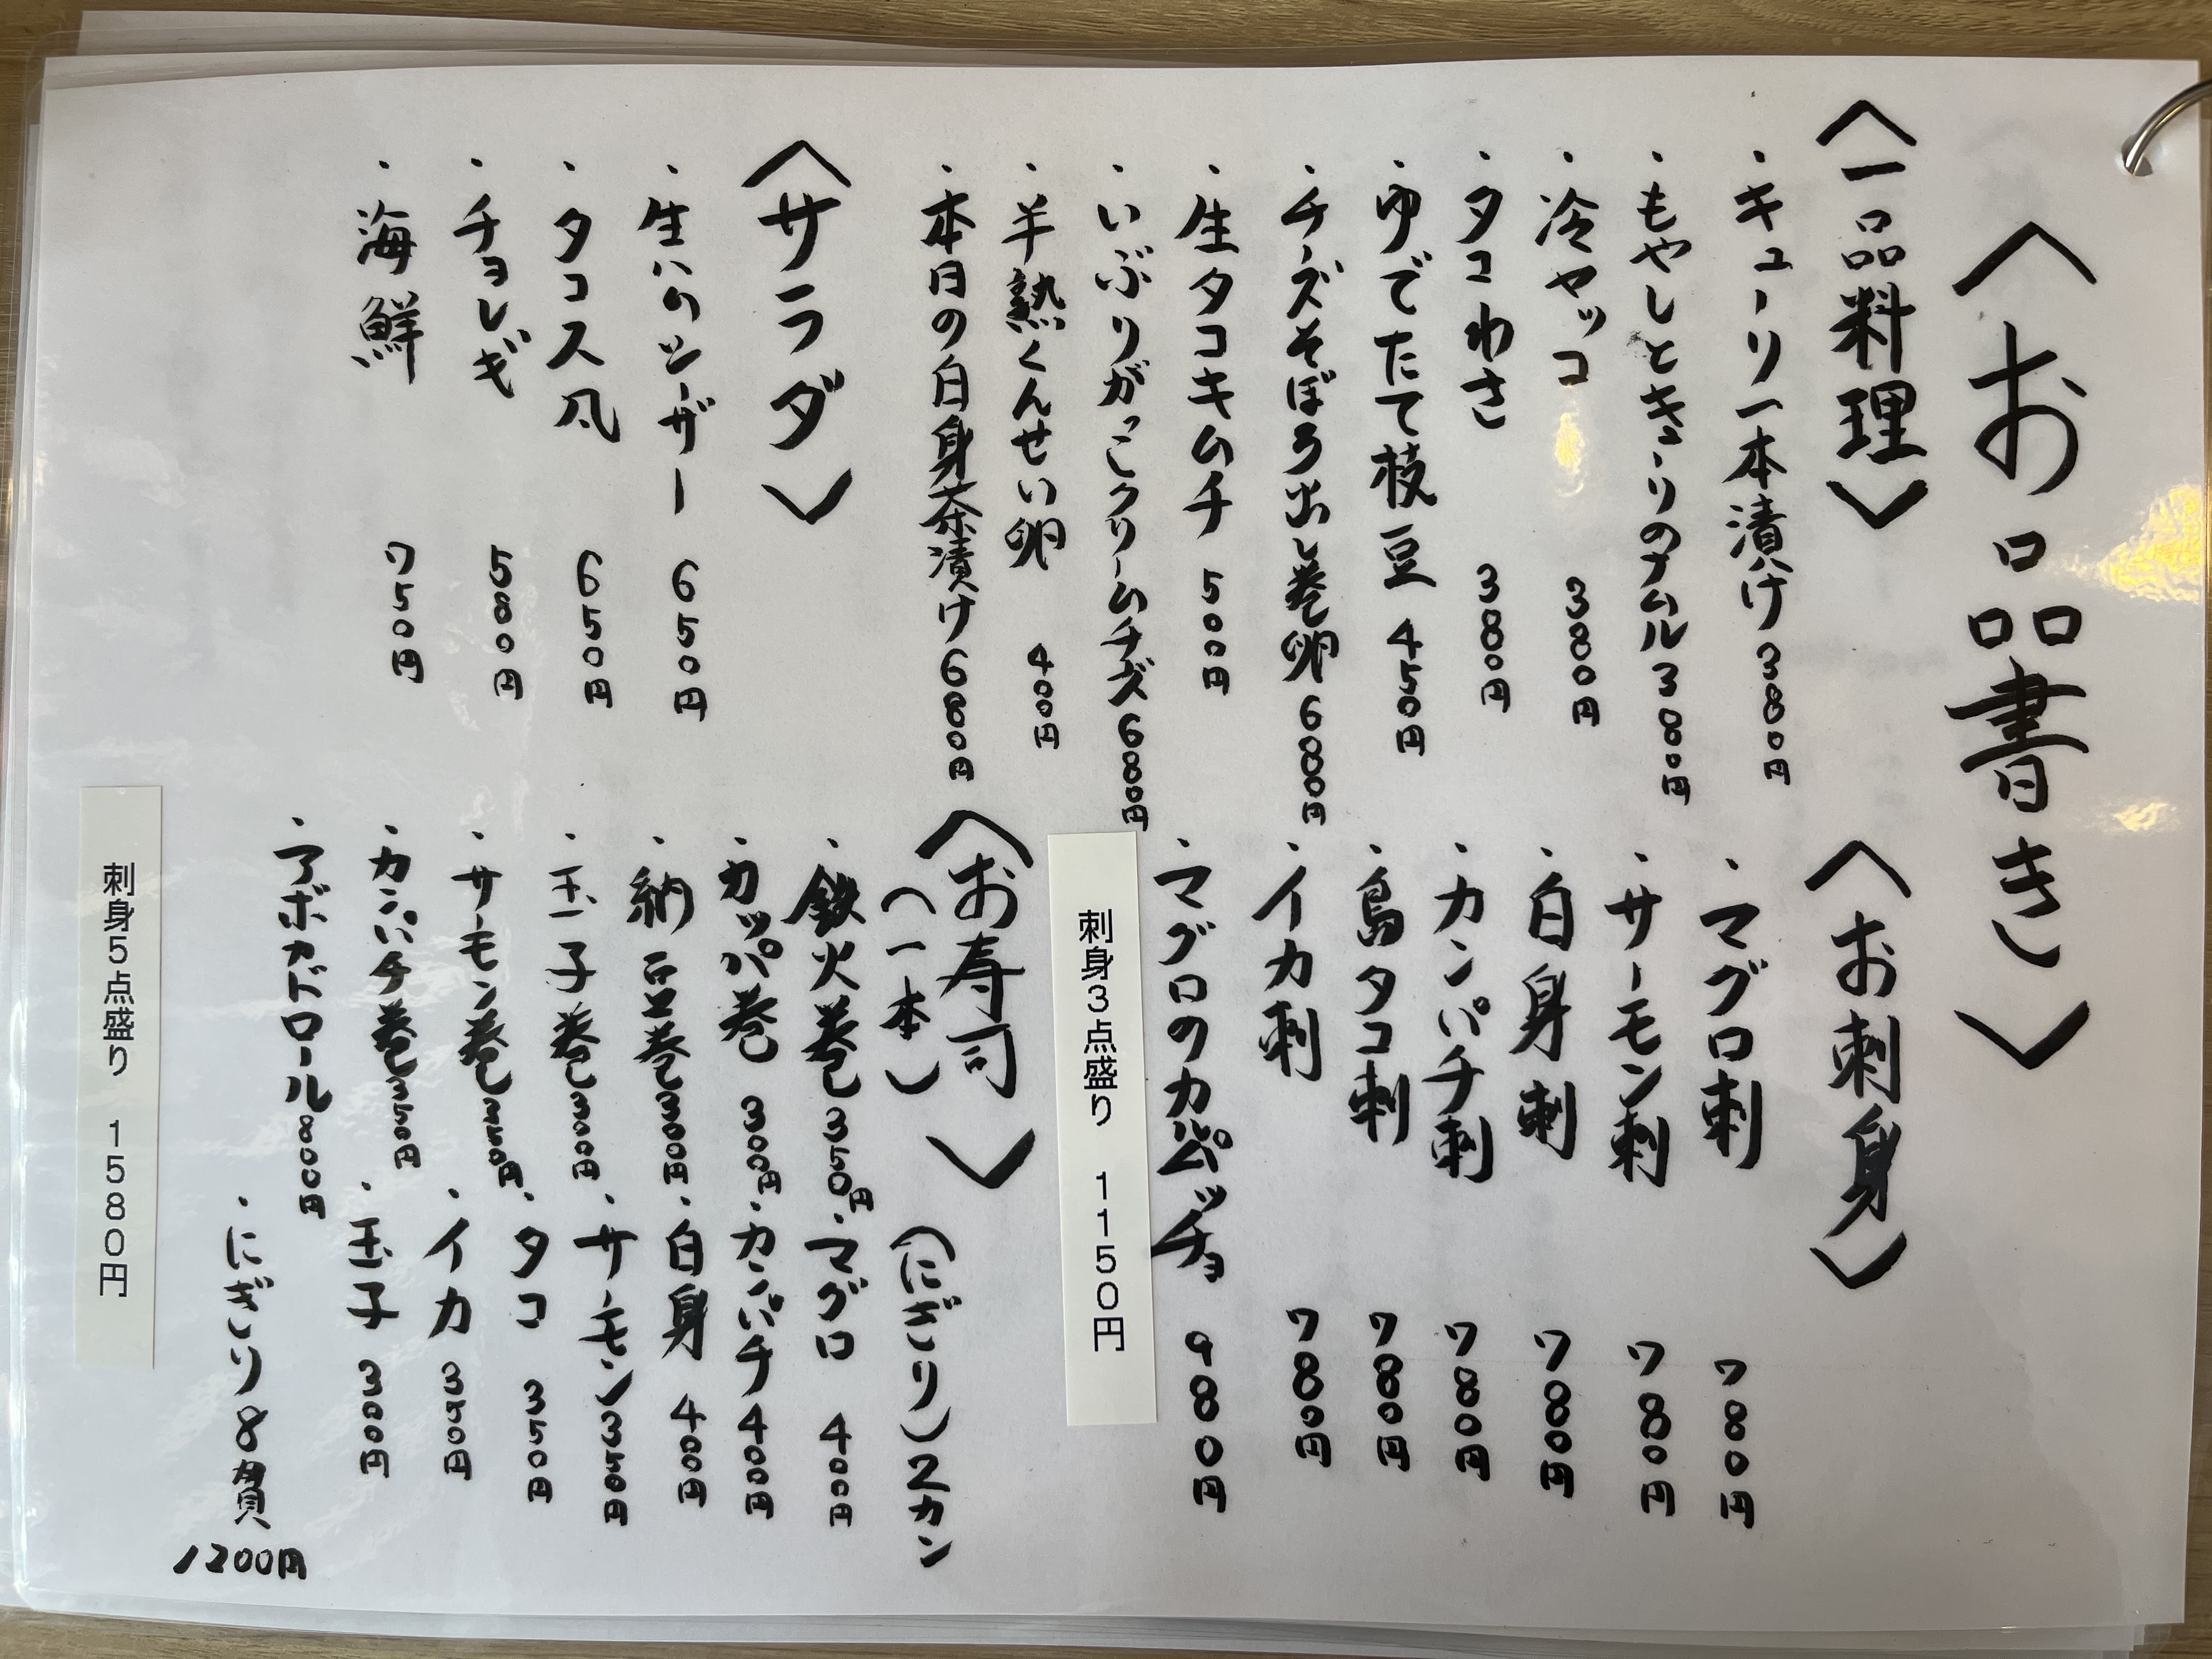 〈お品書き〉
〈一品料理〉
・キューリ一本漬け380円
・もやしときゅーりのナムル380円
・冷ヤッコ 380円
・タコわさ 380円
・ゆでたて枝豆 450円
・チーズそぼろ出し巻卵 680円
・生タコキムチ 500円
・いぶりがっこクリームチーズ680円
・半熟くんせい卵 400円
・本日の白身茶漬け680円
〈サラダ〉
・生ハムのシーザー 650円
・タコス風 650円
・チョレギ 580円
・海鮮 750円
〈お刺身〉
・マグロ刺 780円
・サーモン刺 780円
・白身刺 780円
・カンパチ刺 780円
・島タコ刺 780円
・イカ刺 780円
・マグロのカルパッチョ 980円
刺身3点盛り 1150円
〈お寿司〉
(一本)
・鉄火巻350円
・カッパ巻 300円
・納豆巻300円
・玉子巻300円
・サーモン巻350円
・カンパチ巻350円
・アボカドロール800円
(にぎり)2カン
・マグロ 400円
・カンパチ400円
・白身 400円
・サーモン350円
・タコ 350円
・イカ 350円
・玉子 300円
・にぎり8貫
1200円
刺身5点盛り 1580円